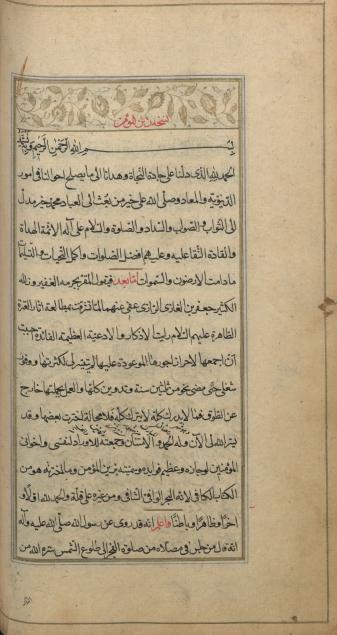 بسم الله الرحمن الرحيم وبه نستعين
الحمد لله الذي دلنا على جادة النجاة وهدانا الى ما يصلح احوالنا في امور
الدنيوية والمعاد وصلى الله على خير من بعث الى العباد محمد خير مدل
الى الثواب والصواب والسداد والصلوة والسلام على آله الائمة الهداة
والقادة الثقا عليه وعليهم افضل الصلوات واكمل التحيات والتسليمات
ما دامت الارضون والسموات اما بعد فيقول المقر بجرمه الغفير وزلله
الكثير جعفر بن الغازي الرازي عفي عنهما لما تشرفت بمطالعة اثار العترة
الطاهرة عليهم السلام رايت الاذكار والادعية العظيمة الفائدة بحيث
ان اجمعها لاحراز اجورها الموعودة عليها لم يتيسر لي لكثرتها ووفور
شغلي حتى مضى نحو من ثلثين سنة وتدوين كلها والعمل بجملتها خارج
عن الطوق فما لا يدرك كله لا يترك كله فلا محالة اخترت بعضها وقد
يسر الله لي الان وله الحمد والامتنان وجمعته للاوراد لنفسي واخواني
المؤمنين لمجازه وعظيم فوايده وسميته بزين المؤمن وماخذ به هو من
الكتاب الكافي لانه البحر الوافي الشافي ومن غيره على قلة والحمد لله اولا و
اخرا وظاهرا وباطنا واعلم انه قد روى عن رسول الله صلى الله عليه وآله
انه قال من جلس في مصلاه من صلوة الفجر الى طلوع الشمس ستره الله من